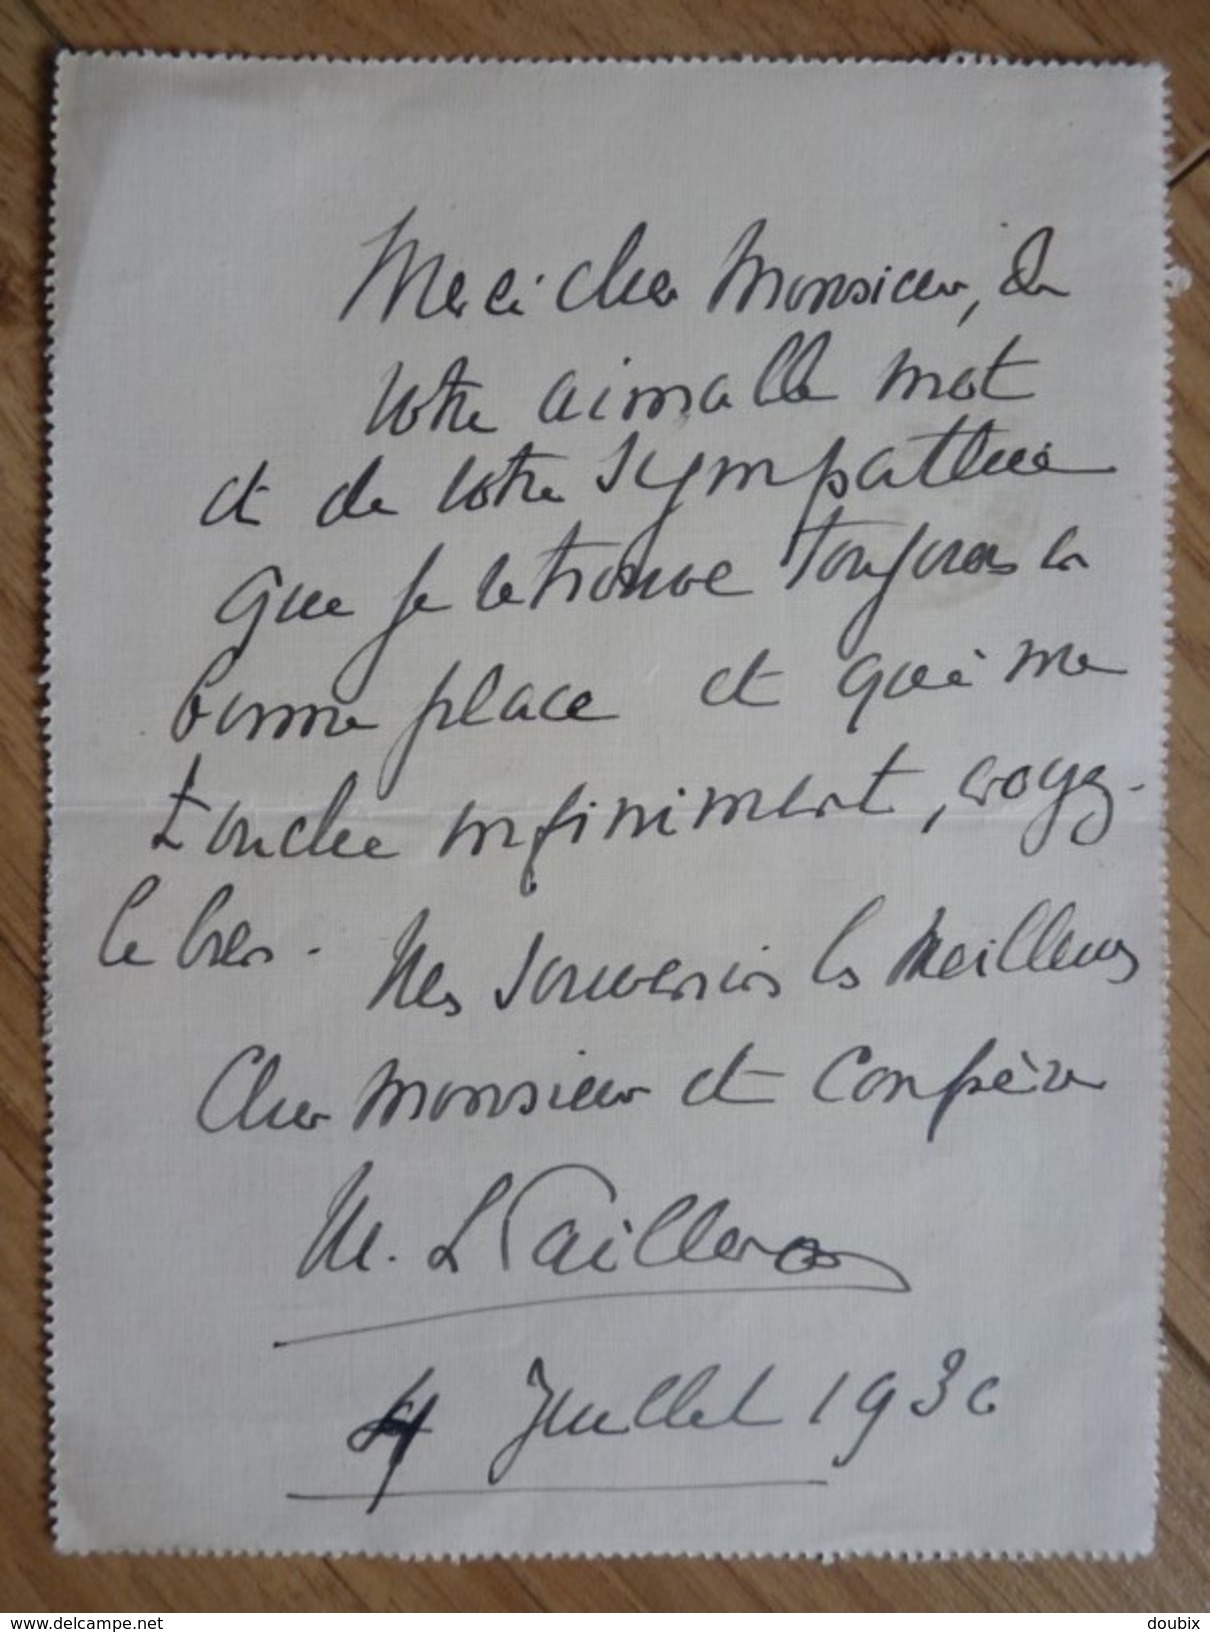 Merci cher Monsieur, de
votre aimable mot
et de votre sympathie
que je retrouve toujours en
bonne place et qui me
touche infiniment, croyez-
le bien. Mes souvenirs les meilleurs
Cher Monsieur et Confrère
M. L Pailleron
4 Juillet 1930
delcampe.net
doubix